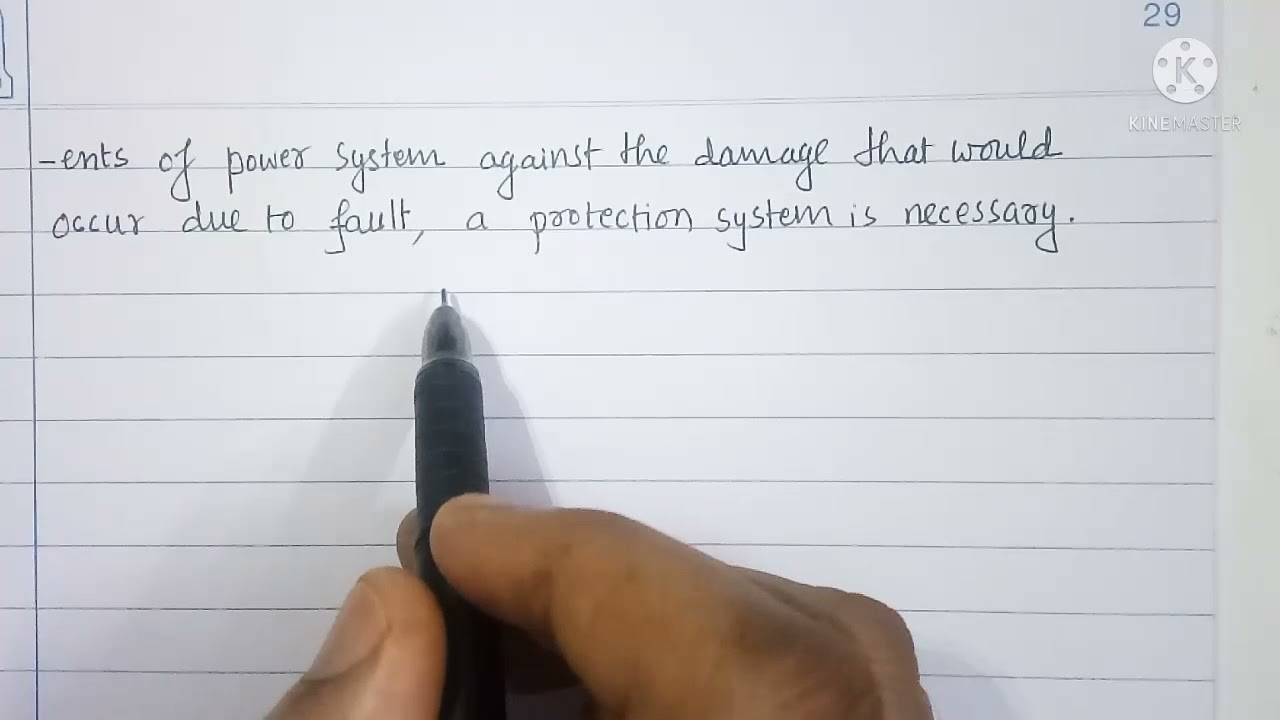 29
K
KINEMASTER
-ents of power system against the damage that would
occur due to fault, a protection system is necessary.